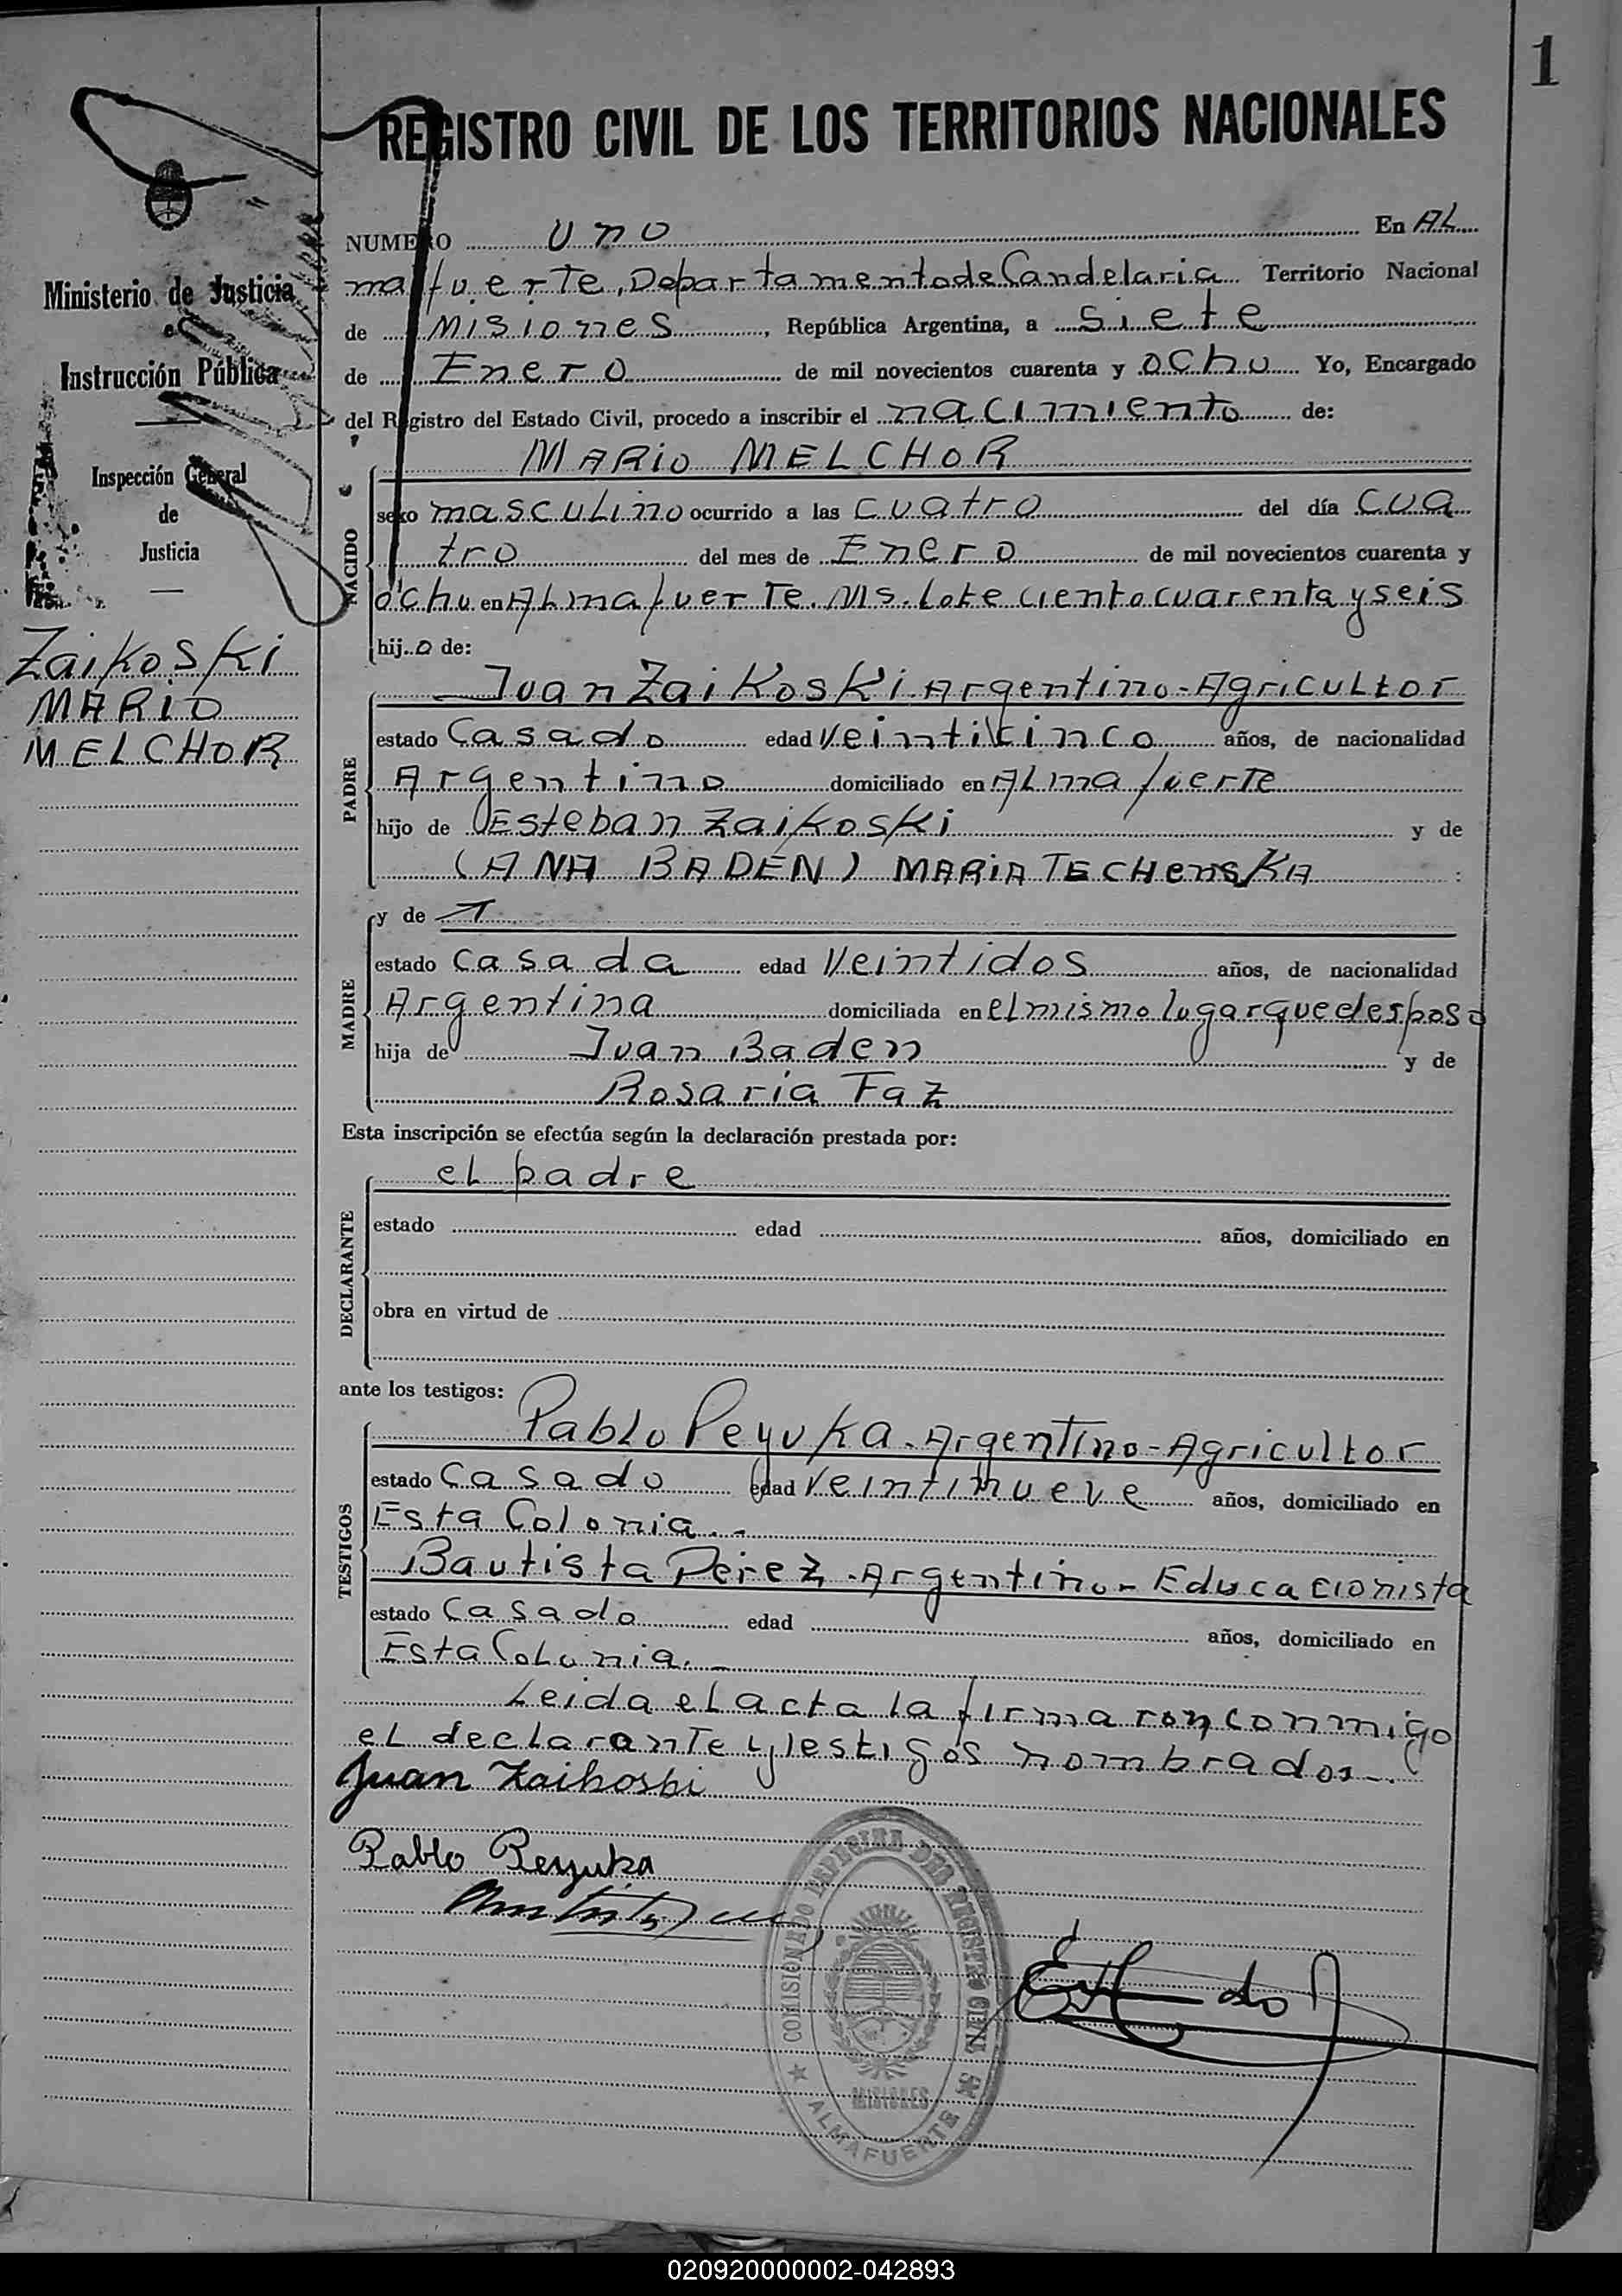 1
REGISTRO CIVIL DE LOS TERRITORIOS NACIONALES
Ministerio de Justicia
e
Instrucción Pública
Inspección General
de
Justicia
Zaikoski
MARIO
MELCHOR
NUMERO uno En AL
mafuerte, Departamento de Candelaria Territorio Nacional
de Misiones, República Argentina, a siete
de Enero de mil novecientos cuarenta y ocho Yo, Encargado
del Registro del Estado Civil, procedo a inscribir el nacimiento de:
NACIDO
MARIO MELCHOR
sexo masculino ocurrido a las cuatro del día cua
tro del mes de Enero de mil novecientos cuarenta y
ocho en ALmafuerte. Ms. Lote ciento cuarenta y seis
hij o de:
PADRE
Juan Zaikoski Argentino - Agricultor
estado Casado edad veinticinco años, de nacionalidad
Argentino domiciliado en ALmafuerte
hijo de Esteban Zaikoski y de
(ANA BADEN) MARIA TECHensKA
MADRE
y de
estado casada edad Veintidos años, de nacionalidad
Argentina domiciliada en el mismo lugar que el esposo
hija de Juan Baden y de
Rosaria Faz
Esta inscripción se efectúa según la declaración prestada por:
DECLARANTE
el padre
estado edad años, domiciliado en
obra en virtud de
ante los testigos:
TESTIGOS
Pablo Peyuka - Argentino - Agricultor
estado Casado edad veintinueve años, domiciliado en
Esta Colonia.-
Bautista Perez - Argentino - Educacionista
estado Casado edad años, domiciliado en
Esta Colonia.-
Leida el acta la firmaron conmigo
el declarante y testigos nombrados.-
Juan Zaikoski
Pablo Peyuka
COMISIONADO ESPECIAL DEL REGISTRO CIVIL
MISIONES
ALMAFUERTE
020920000002-042893